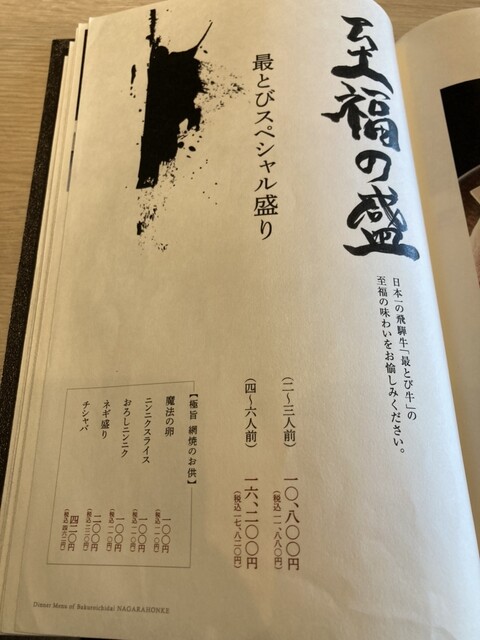 至福の盛
日本一の飛騨牛「最とび牛」の
至福の味わいをお愉しみください。
最とびスペシャル盛り
(二〜三人前) 一〇、八〇〇円
(税込 一一、八八〇円)
(四〜六人前) 一六、二〇〇円
(税込 一七、八二〇円)
【極旨 網焼のお供】
魔法の卵 一〇〇円
(税込 一一〇円)
ニンニクスライス 一〇〇円
(税込 一一〇円)
おろしニンニク 一〇〇円
(税込 一一〇円)
ネギ盛り 二〇〇円
(税込 二二〇円)
チシャバ 四二〇円
(税込 四六二円)
Dinner Menu of Bakuroichidai NAGARAHONKE